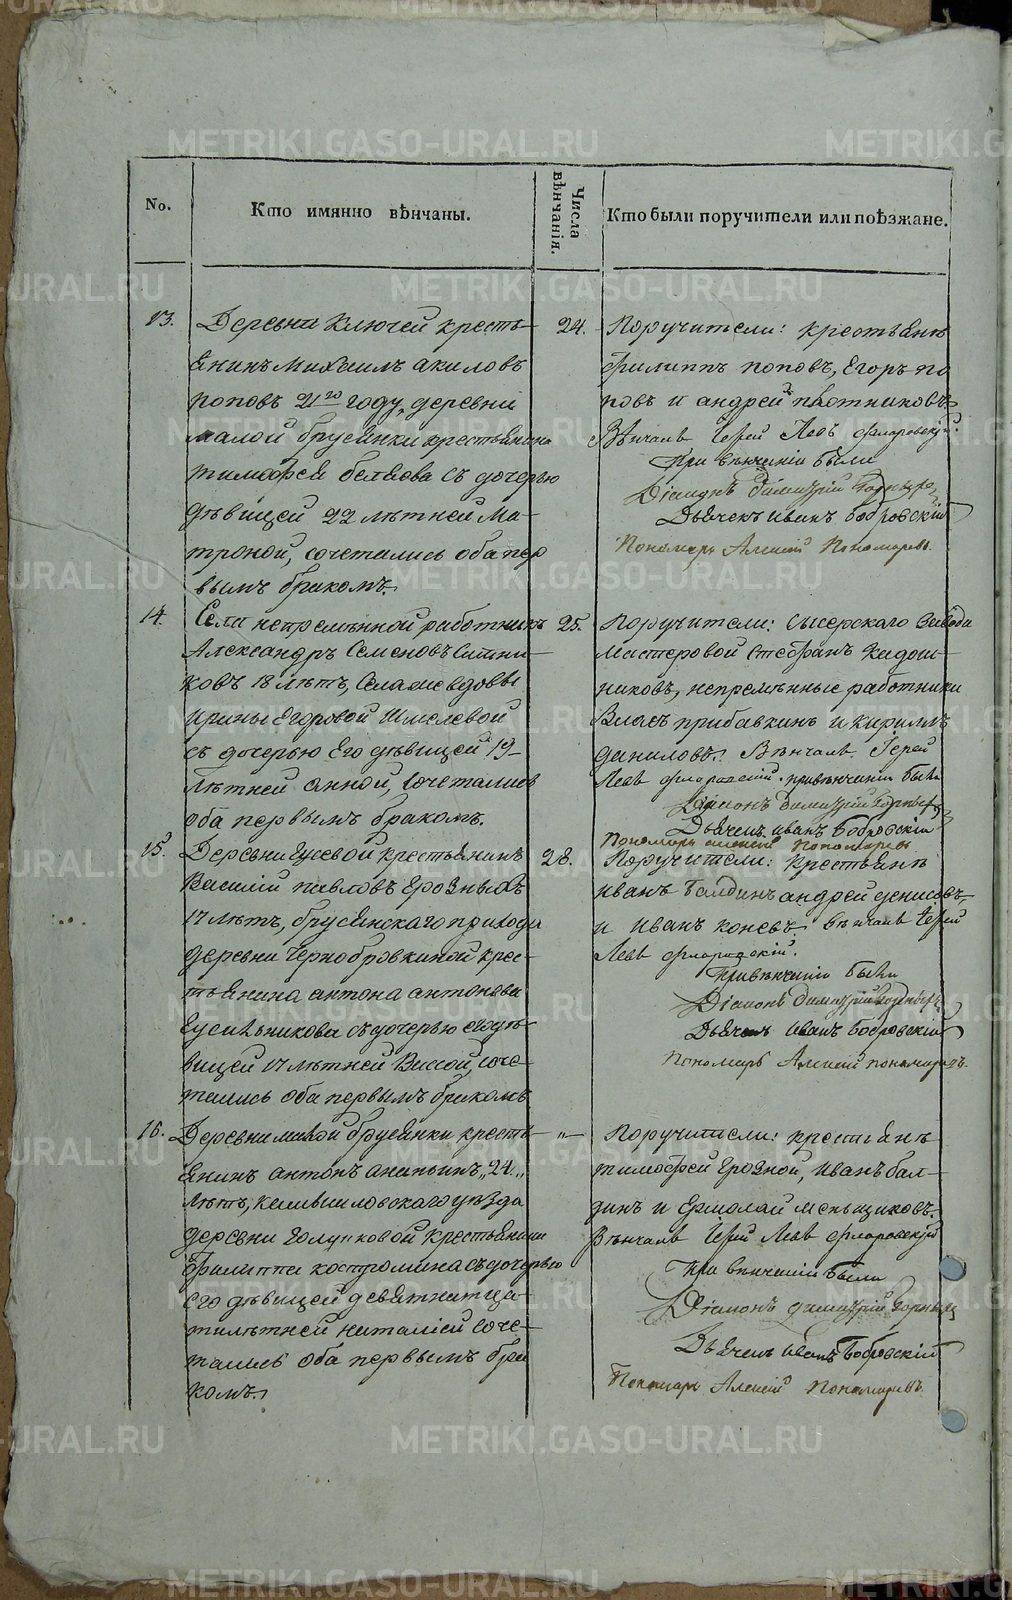 No.
Кто имянно вѣнчаны.
Числа вѣнчанія.
Кто были поручители или поѣзжане.
13.
Деревни Ключей кресть-
янинъ михаилъ акиловъ
поповъ 21го году, деревни
малой брусянки крестьянина
тимофея беляева съ дочерью
дѣвицей 22 лѣтней Ма-
троной, сочетались оба пер
вымъ бракомъ.
24.
Поручители: крестьяне
филиппъ поповъ, Егоръ по
повъ и андрей плотниковъ
Вѣнчалъ Іерей Левъ флоровскій.
При вѣнчаніи были
Діаконъ димитрій
Дьячекъ иванъ бобровскій
Пономарь Алексій Пономаревъ.
14.
Села непремѣнной работникъ
Александръ Семеновъ Ситни-
ковъ 18 лѣтъ, Села же вдовы
ирины Егоровой Шмелевой
съ дочерью Его дѣвицей 19-
лѣтней анной, сочетались
оба первымъ бракомъ.
25.
Поручители: Сысерскаго Завода
мастеровой Стефанъ Кадош-
никовъ, непремѣнные работники
Власъ прибавкинъ и кириллъ
даниловъ. Вѣнчалъ Іерей
Левъ флоровскій. при вѣнчаніи были
Діаконъ димитрій
Дьячекъ иванъ Бобровскій
Пономарь алексій Пономаревъ
15.
Деревни гусевой крестьянинъ
Василій павловъ Ерозныхъ
17 лѣтъ, брусянскаго прихода
деревни Чернобровкиной крес-
тьянина антона антонова
Гусильникова съ дочерью его дѣ-
вицей 17 лѣтней Вассой, соче-
тались оба первымъ бракомъ
28.
Поручители: Крестьяне
иванъ балдинъ андрей денисовъ
и Иванъ коневъ. Вѣнчалъ Іерей
Левъ флоровскій.
При вѣнчаніи были
Діаконъ димитрій
Дьячекъ иванъ бобровскій
Пономарь Алексій пономаревъ.
16.
Деревни малой брусянки кресть-
янинъ антонъ ананьинъ „24„
лѣтъ, камышловскаго уѣзда
деревни Голунковой крестьянина
филиппа костромина съ дочерью
его дѣвицей девятнатца-
тилѣтней наталіей соче-
тались оба первымъ бра
комъ.
„
Поручители: крестьяне
тимофей Ерозной, иванъ бал-
динъ и Ермолай меньщиковъ.
Вѣнчалъ Іерей Левъ флоровскій
При вѣнчаніи были
Діаконъ димитрій
Дьячекъ иванъ Бобровскій
Пономарь Алексій Пономаревъ.
METRIKI.GASO-URAL.RU